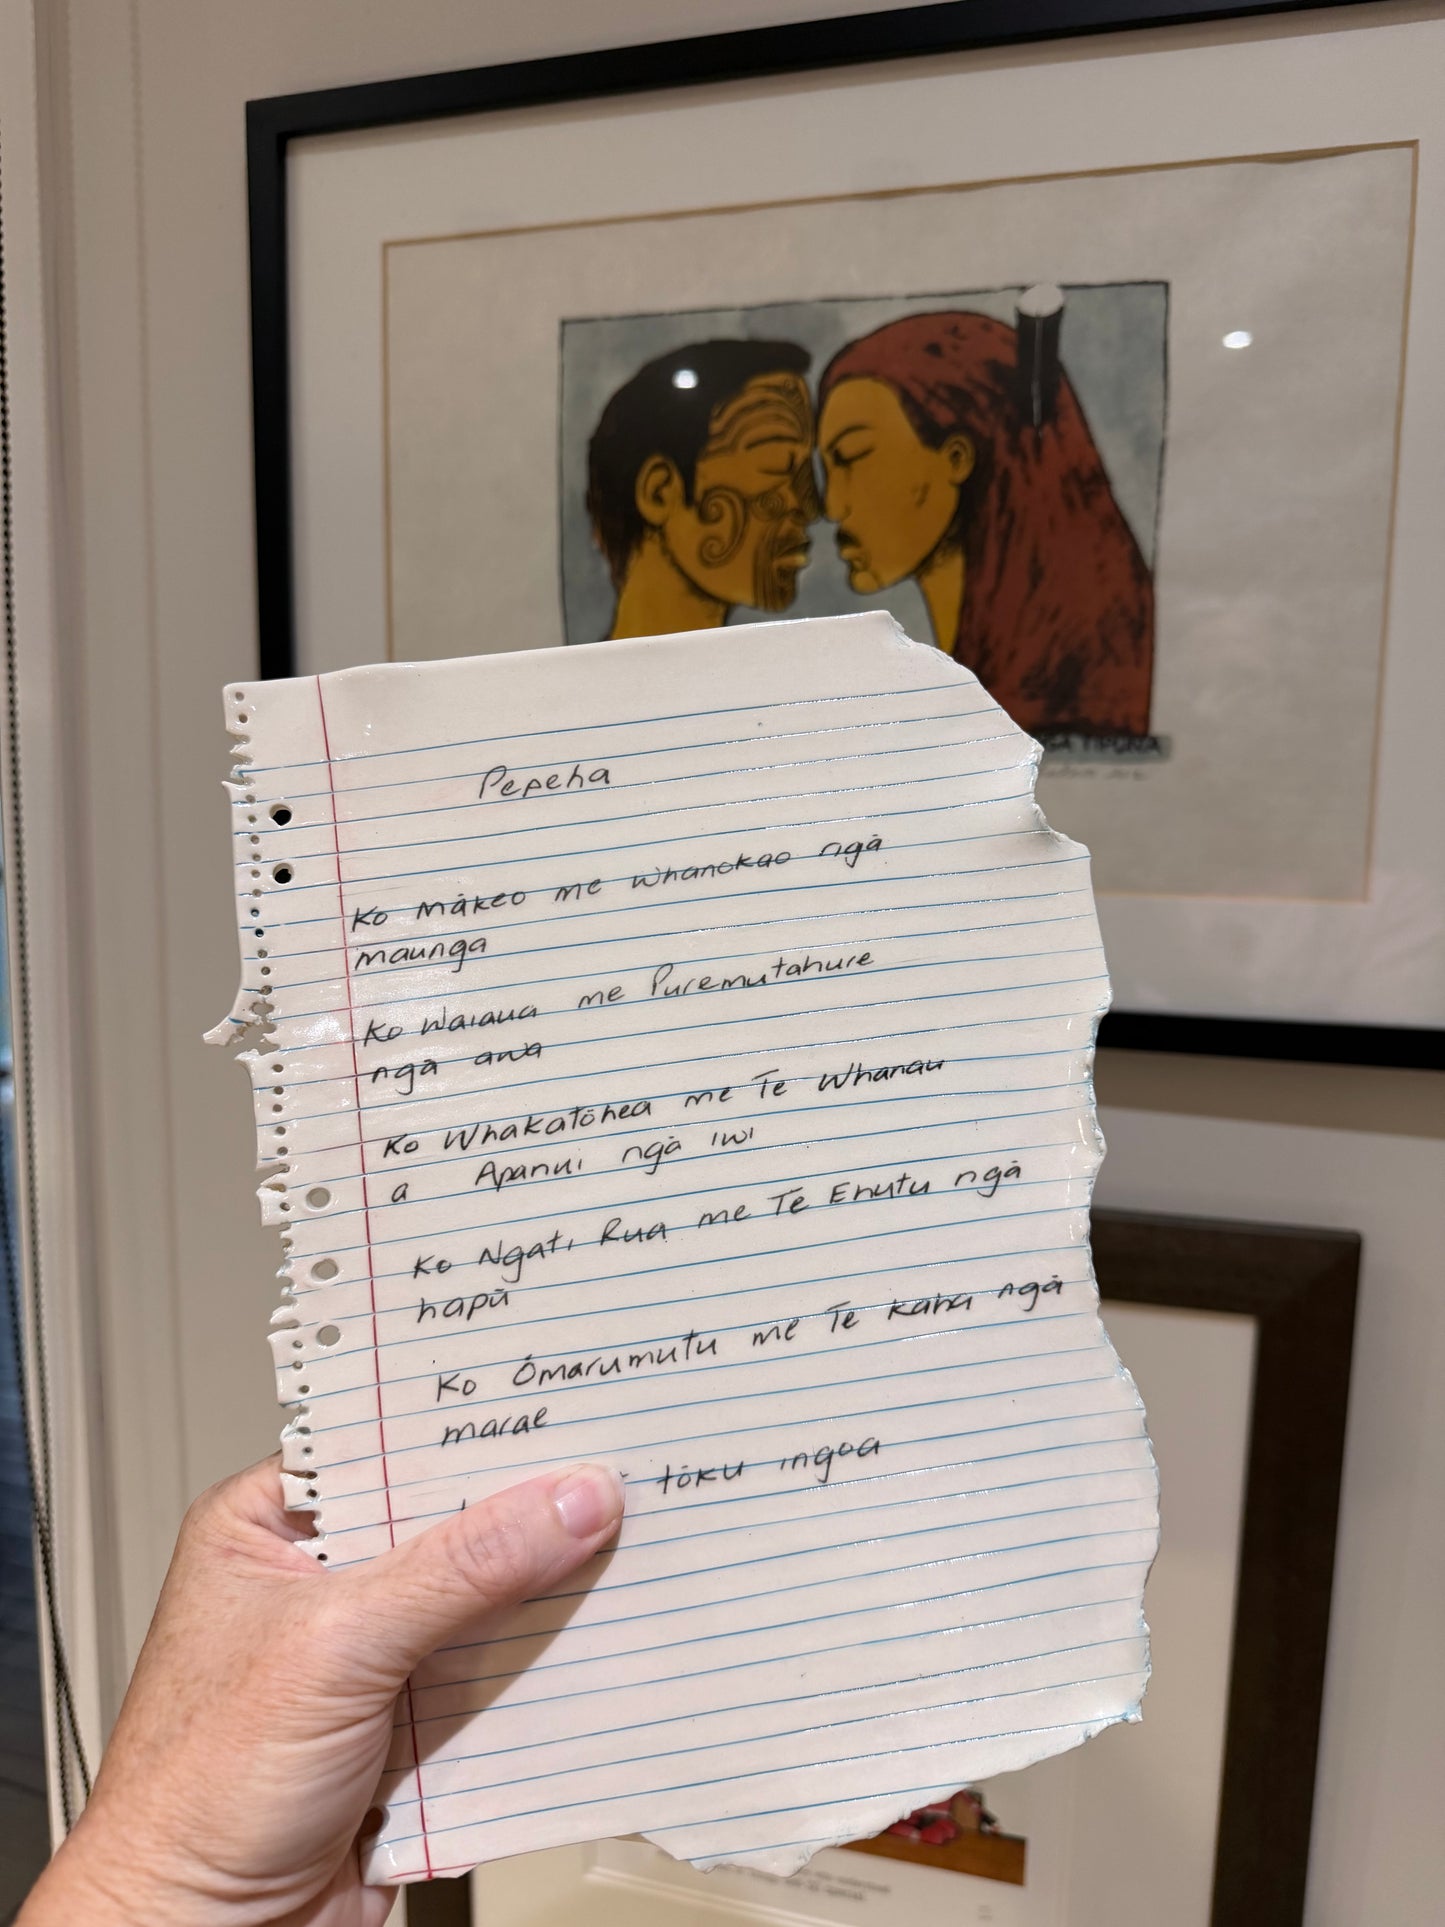 TIPUNA
Pepeha
Ko Mākeo me Whanokao ngā
maunga
Ko Waiaua me Puremutahure
ngā awa
Ko Whakatōhea me Te Whanau
a Apanui ngā iwi
Ko Ngati Rua me Te Ehutu ngā
hapū
Ko Ōmarumutu me Te Kaha ngā
marae
tōku ingoa